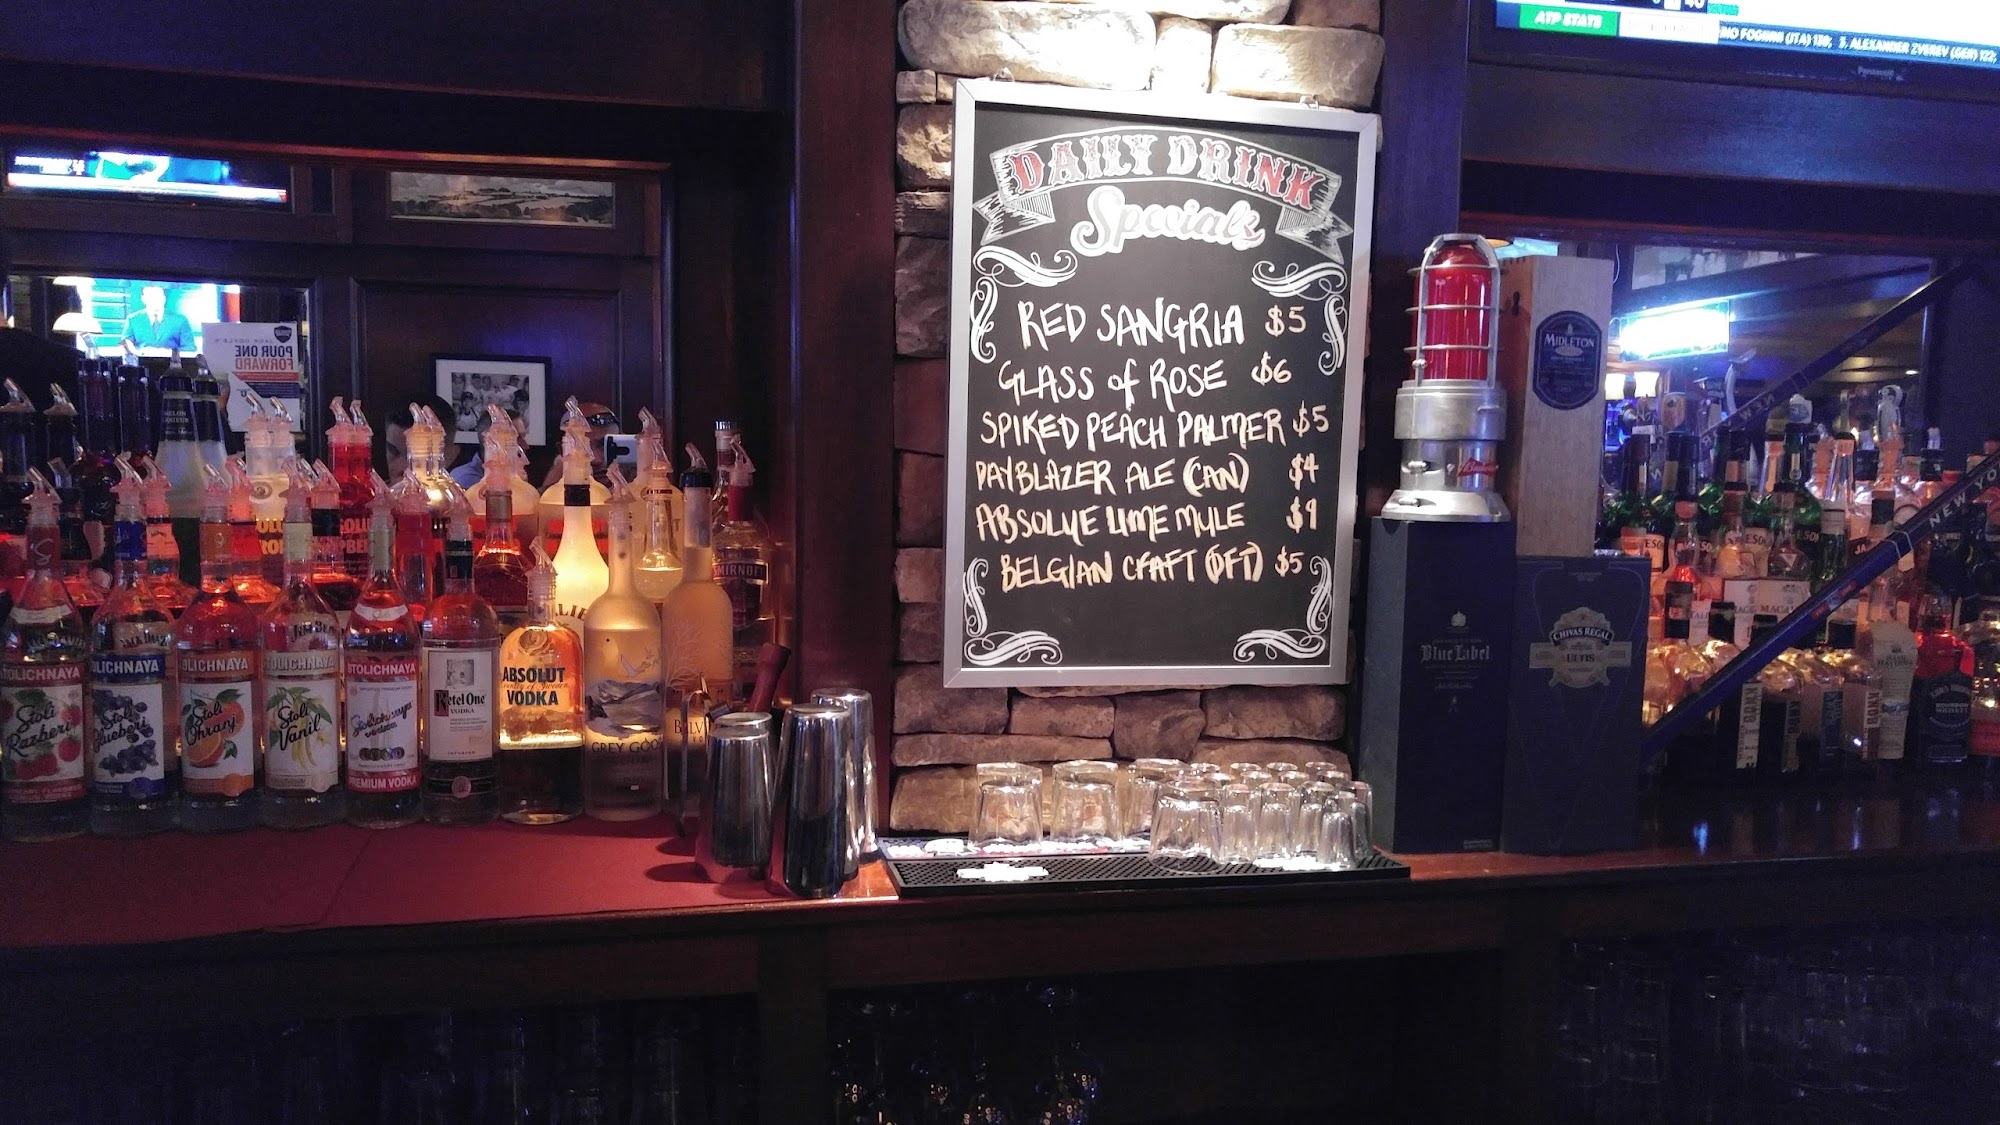 ATP STATS
NO FOGNINI (ITA) 130; 3. ALEXANDER ZVEREV (GER) 122;
Panasonic
DAILY DRINK
Specials
RED SANGRIA $5
GLASS of ROSE $6
SPIKED PEACH PALMER $5
DAYBLAZER ALE (CAN) $4
ABSOLUE LIME MULE $9
BELGIAN CRAFT (DFT) $5
POUR ONE
FORWARD
MIDLETON
Blue Label
CHIVAS REGAL
ULTIS
NEW YO
SMIRNOFF
STOLICHNAYA
Stoli
Razberi
OLICHNAYA
Stoli
Blueberi
OLICHNAYA
Stoli
Ohranj
JIM BEAM
TOLICHNAYA
Stoli
Vanil
STOLICHNAYA
Stolichnaya
vodka
PREMIUM VODKA
Ketel One
VODKA
ABSOLUT
Country of Sweden
VODKA
GREY GOOSE
BELV